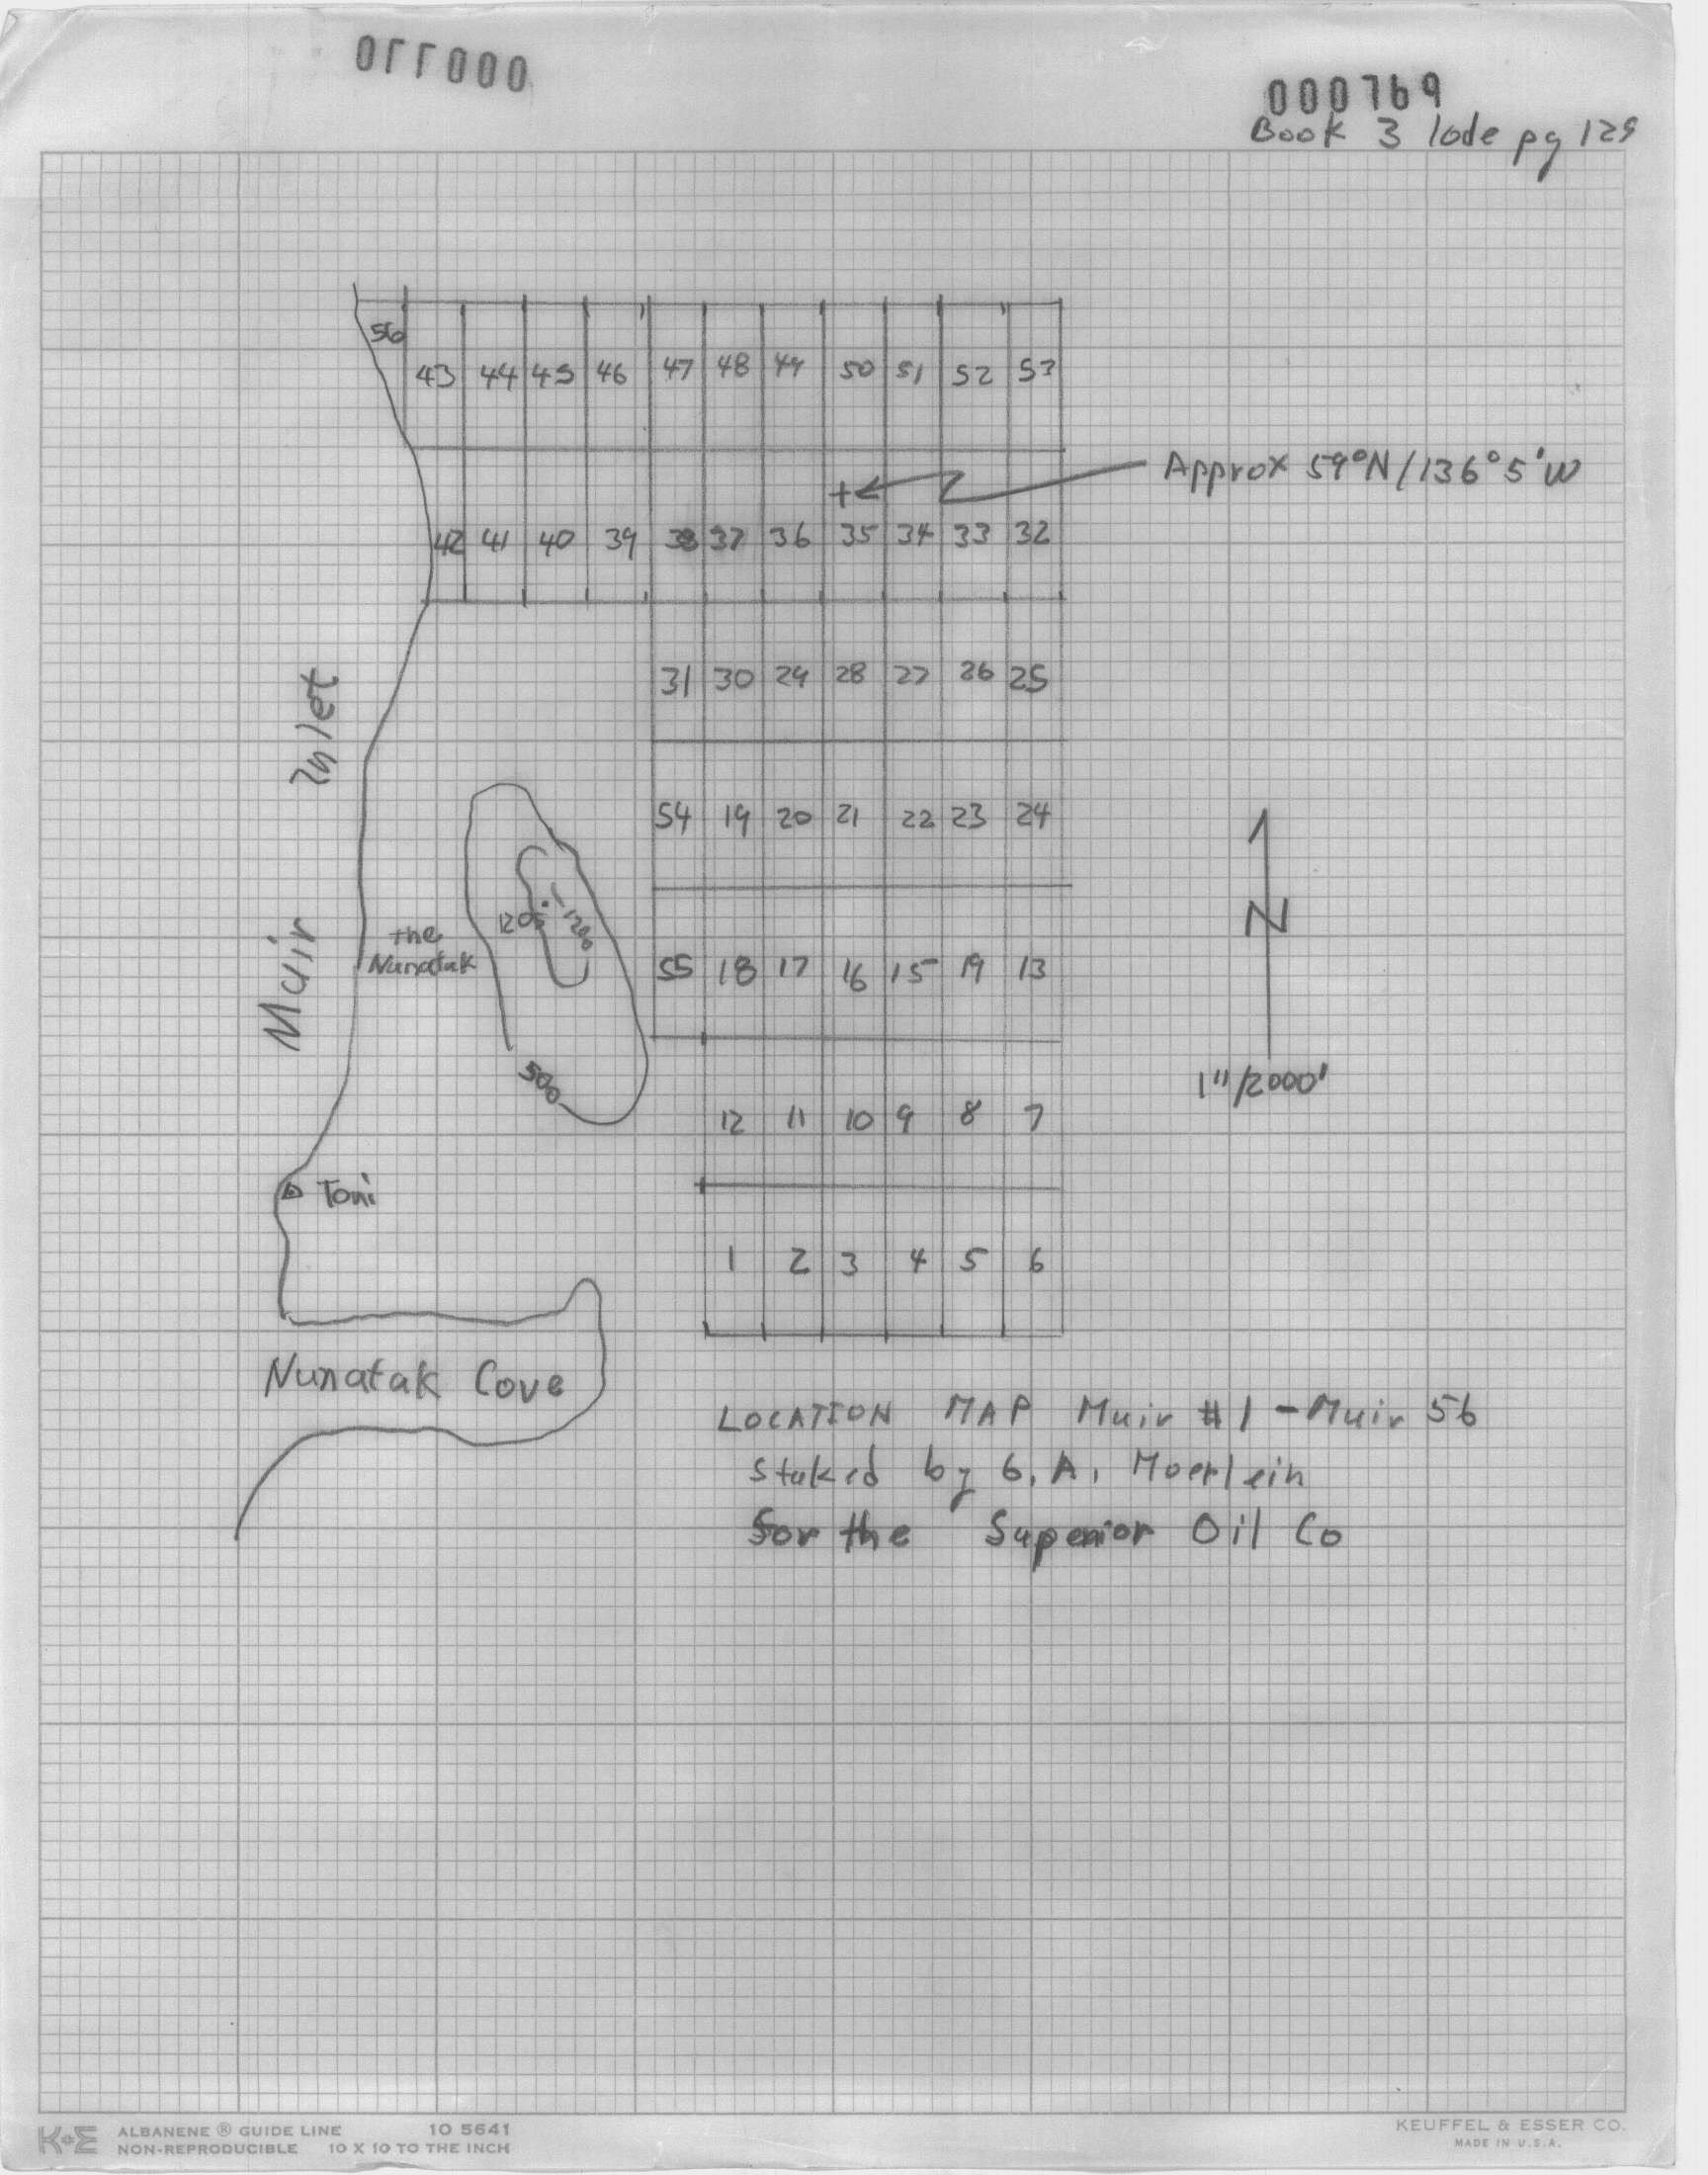 000770
000769
Book 3 lode pg 129
56
43 44 45 46 47 48 49 50 51 52 53
Approx 59°N/136°5'W
42 41 40 39 38 37 36 35 34 33 32
31 30 29 28 27 26 25
54 19 20 21 22 23 24
55 18 17 16 15 19 13
12 11 10 9 8 7
1 2 3 4 5 6
Muir Inlet
1205
1200
the
Nunatak
500
N
1"/2000'
Toni
Nunatak Cove
LOCATION MAP Muir #1 - Muir 56
Staked by G. A. Moerlein
for the Superior Oil Co
K+E ALBANENE ® GUIDE LINE 10 5641
NON-REPRODUCIBLE 10 X 10 TO THE INCH
KEUFFEL & ESSER CO.
MADE IN U.S.A.